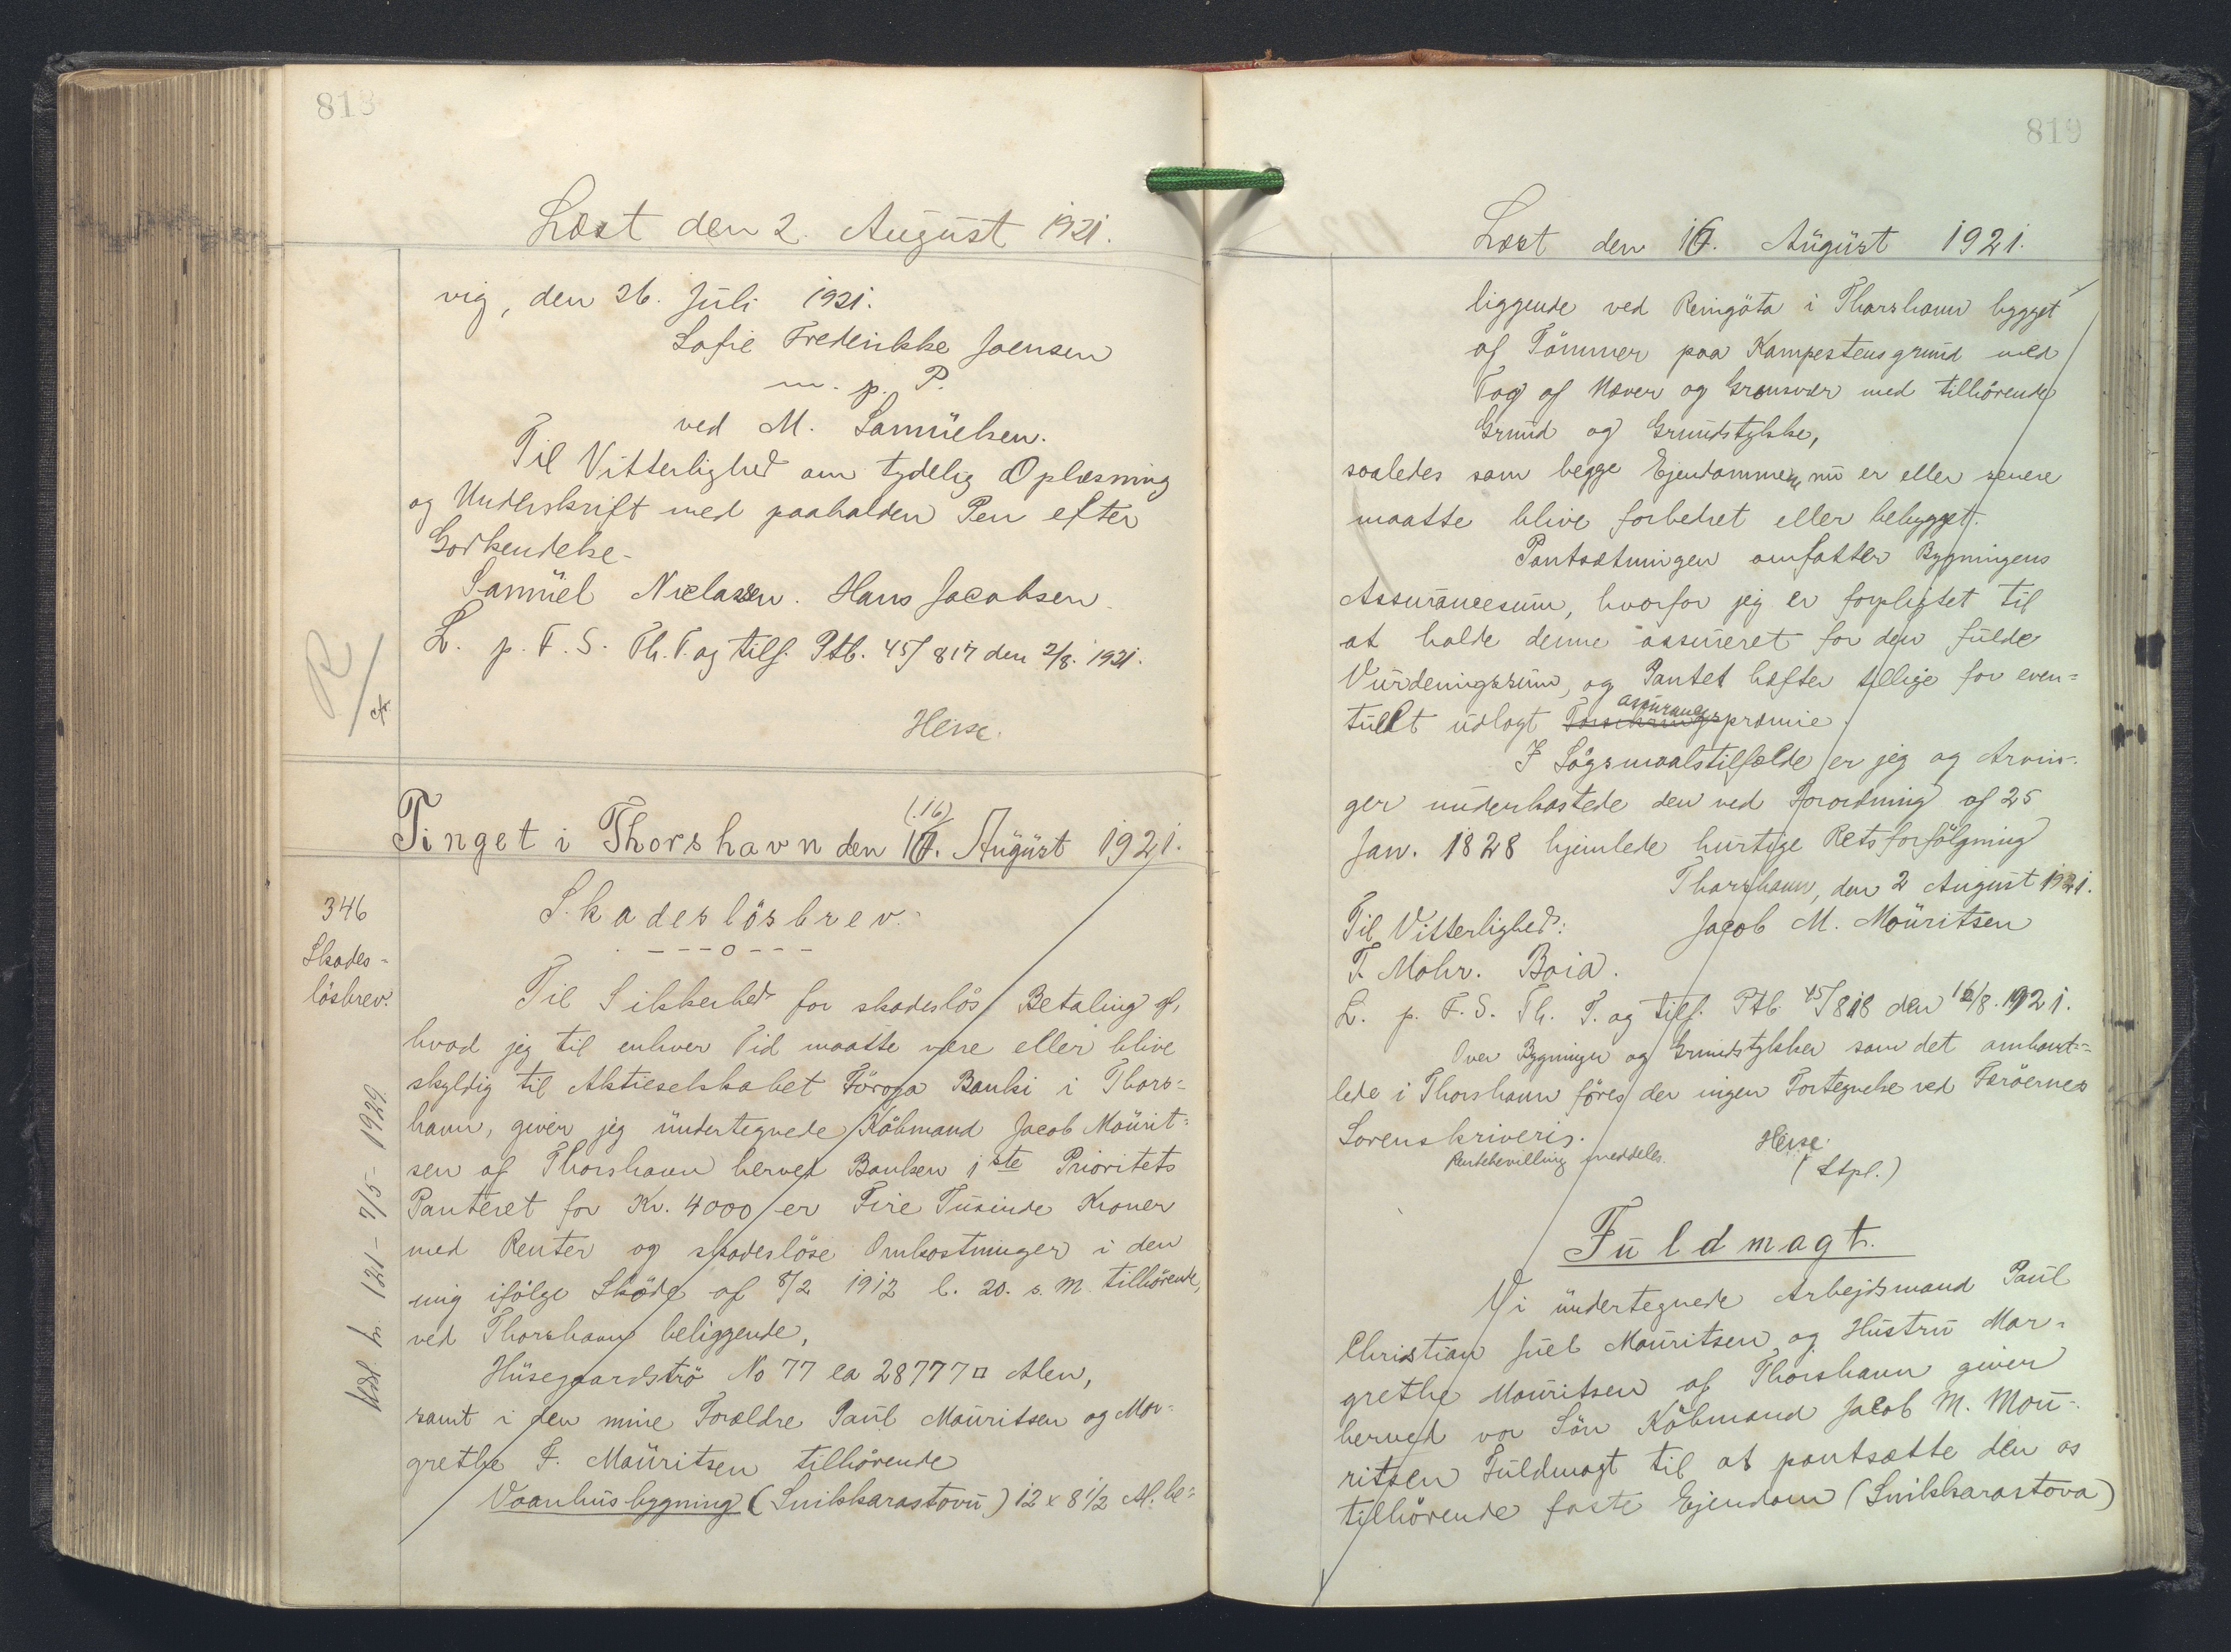 818
Læst den 2. August 1921.
vig, den 26. Juli 1921.
Sofie Frederikke Joensen
m. p. P.
ved M. Samuelsen.
Til Vitterlighed om tydelig Oplæsning
og Underskrift med paaholden Pen efter
Godkendelse.
Samuel Niclasen. Hans Jacobsen.
L. p. F. S. Th. T. og tilf. Ptb. 45/817 den 2/8. 1921.
R
cfr.
Heise.
(16)
Tinget i Thorshavn den 16. August 1921.
346
Skades-
lösbrev.
Skadeslösbrev.
---o---
Til Sikkerhed for skadeslös Betaling af,
hvad jeg til enhver Tid maatte være eller blive
skyldig til Aktieselskabet Föroya Banki i Thors=
havn, giver jeg undertegnede Köbmand Jacob Mourit=
sen af Thorshavn herved Banken 1ste Prioritets
Panteret for Kr. 4000 er Fire Tusinde Kroner
med Renter og skadeslöse Omkostninger i den
mig ifölge Sköde af 8/2 1912 l. 20. s. M. tilhörende,
ved Thorshavn beliggende,
Husegaardströ No 77 ca 28777 □ Alen,
samt i den mine Forældre Paul Mouritsen og Mar=
grethe F. Mouritsen tilhörende
Vaanhusbygning (Snikkarastovu) 12 x 8 1/2 Al. be=
121 - 7/5 - 1929.
819
Læst den 16. August 1921.
liggende ved Reingöta i Thorshavn bygget
af Tömmer paa Kampestensgrund med
Tag af Næver og Grønsvær med tilhörende
Grund og Grundstykke,
saaledes som begge Ejendommene nu er eller senere
maatte blive forbedret eller bebygget.
Pantsætningen omfatter Bygningens
Assurancesum, hvorfor jeg er forpligtet til
at holde denne assureret for den fulde
Vurderingssum, og Pantet hæfter tillige for even=
assurance
tuelt udlagt præmie.
I Sögsmaalstilfælde er jeg og Arvin=
ger underkastede den ved Forordning af 25
Jan. 1828 hjemlede hurtige Retsforfölgning
Thorshavn, den 2 August 1921.
Til Vitterlighed: Jacob M. Mouritsen
T. Mohr. Boia.
L. p. F. S. Th. T. og tilf. Ptb. 45/818 den 16/8. 1921.
Over Bygninger og Grundstykker som det omhand=
lede i Thorshavn föres der ingen Fortegnelse ved Færöernes
Sorenskriveri.
Rentebevilling meddeles.
Heise.
(Stpl.)
Fuldmagt.
Vi undertegnede Arbejdsmand Paul
Christian Juel Mouritsen og Hustru Mar=
grethe Mouritsen af Thorshavn giver
herved vor Sön Köbmand Jacob M. Mou=
ritsen Fuldmagt til at pantsætte den os
tilhörende faste Ejendom (Snikkarastova)